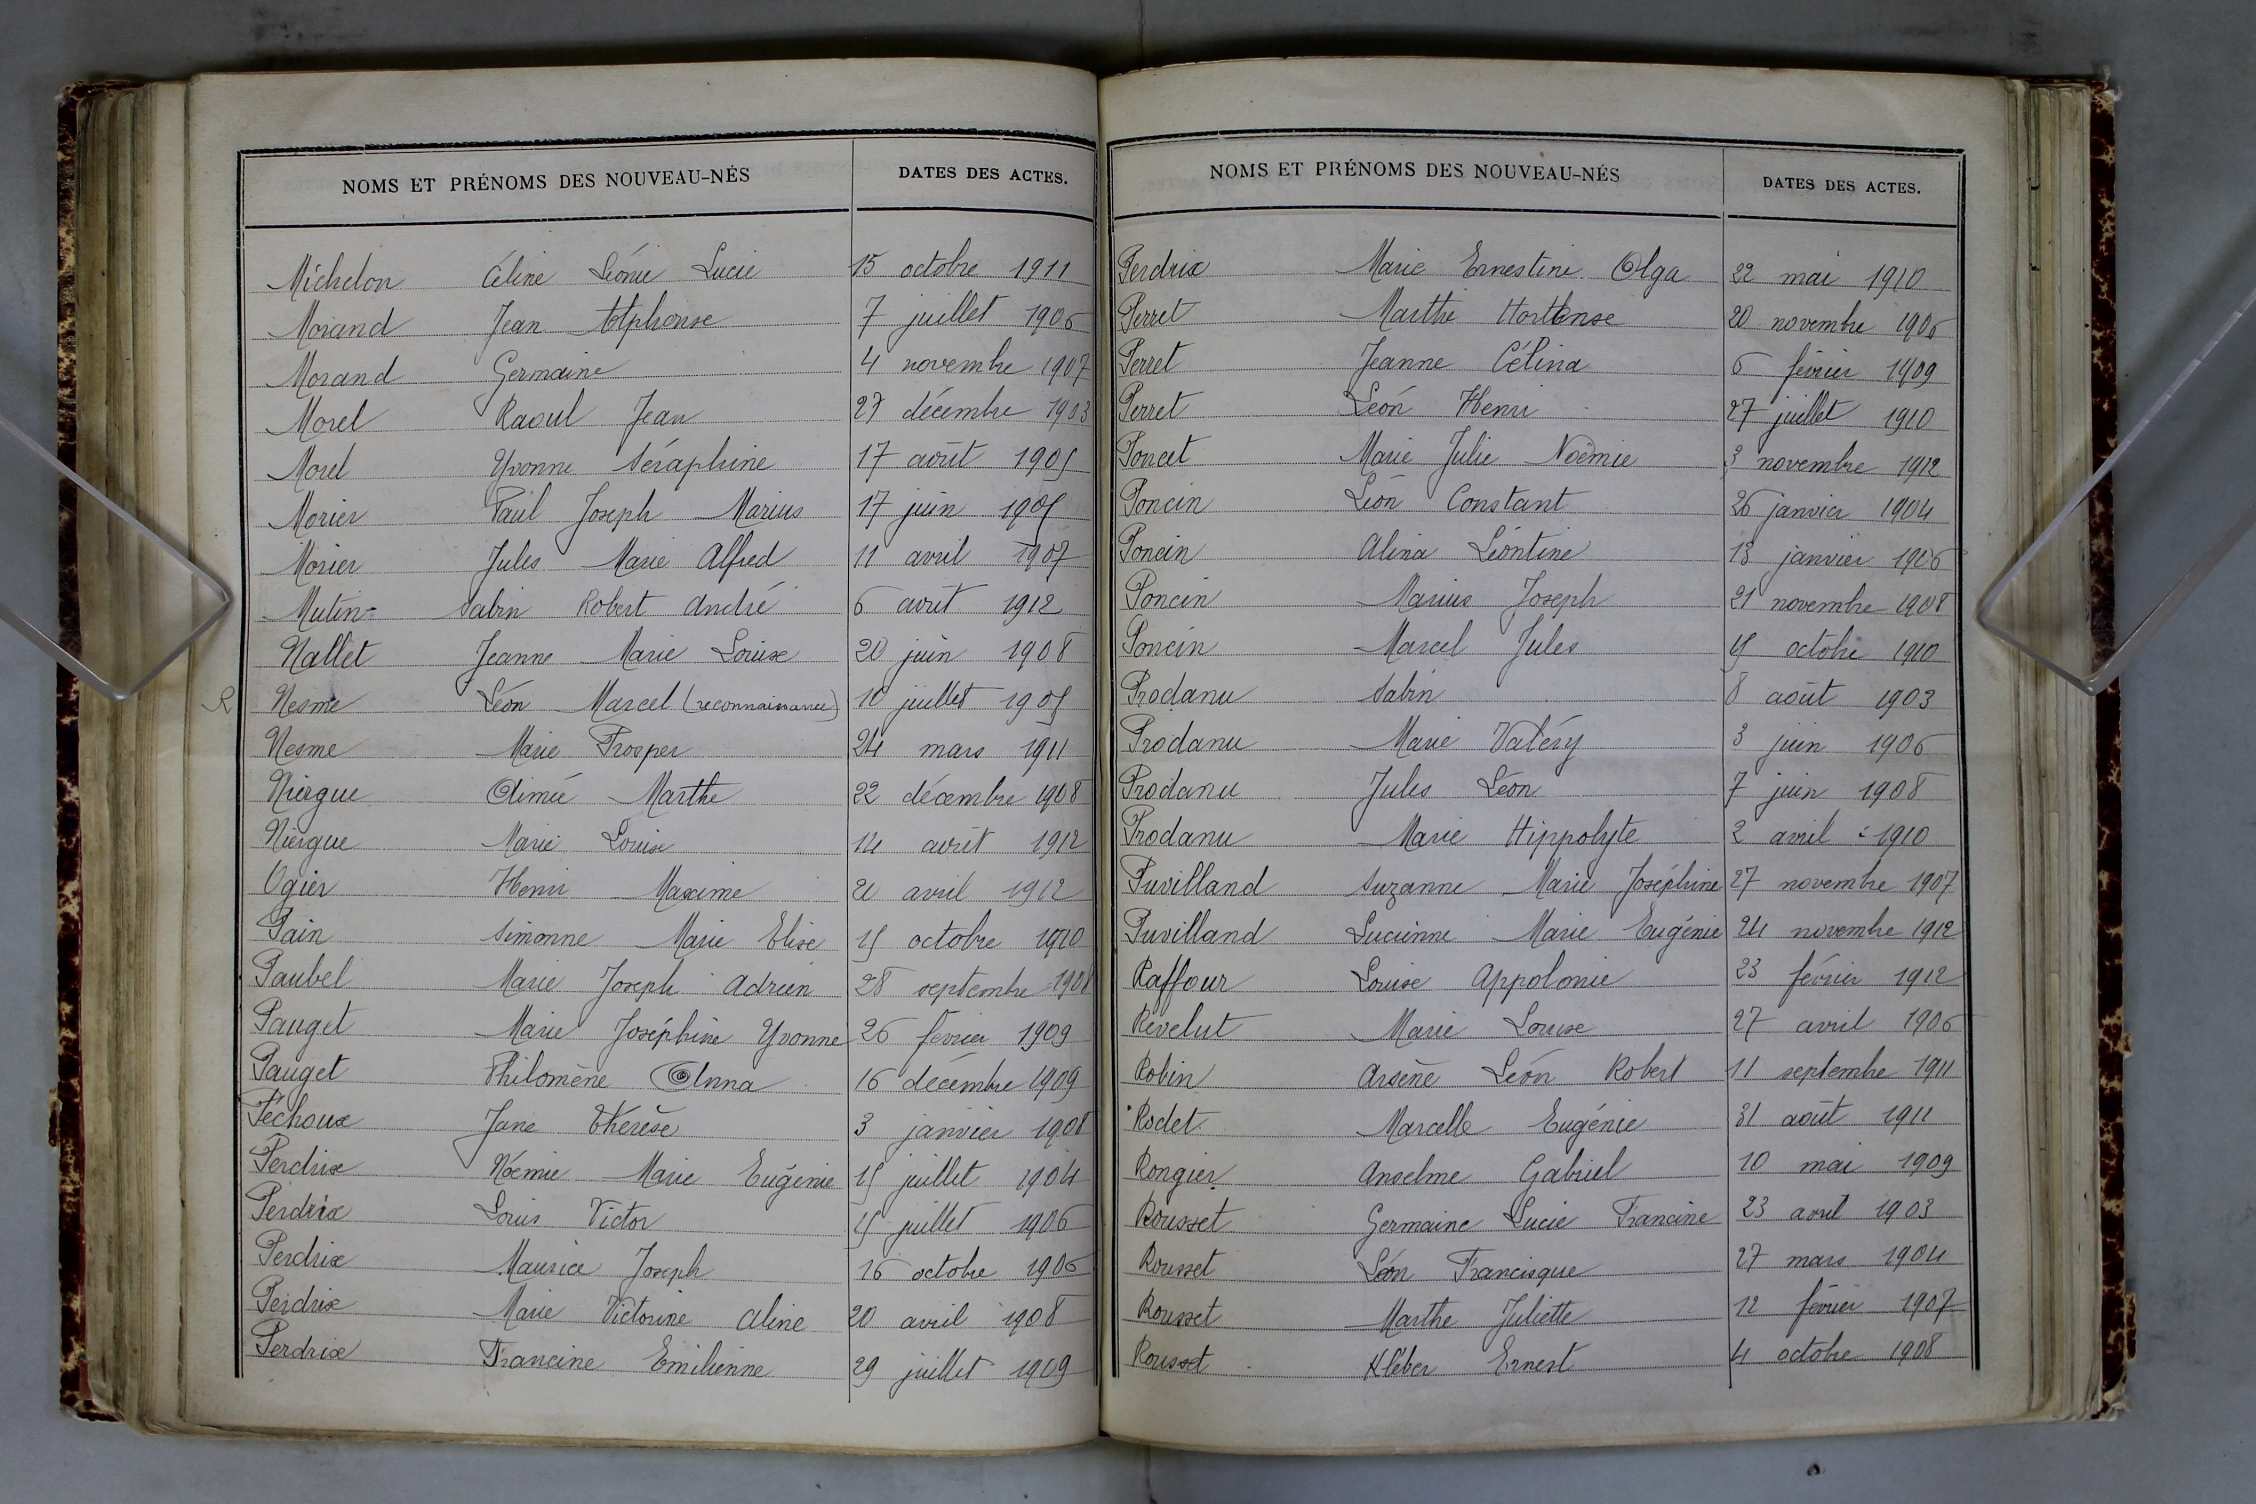 NOMS ET PRÉNOMS DES NOUVEAU-NÉS DATES DES ACTES.
Michelon Céline Léonie Lucie 15 octobre 1911
Morand Jean Alphonse 7 juillet 1906
Morand Germaine 4 novembre 1907
Morel Raoul Jean 27 décembre 1903
Morel Yvonne Séraphine 17 août 1905
Morier Paul Joseph Marius 17 juin 1905
Morier Jules Marie Alfred 11 avril 1907
Mutin- Sabin Robert André 6 août 1912
Nallet Jeanne Marie Louise 20 juin 1908
R Nesme Léon Marcel (reconnaissance) 10 juillet 1905
Nesme Marie Prosper 24 mars 1911
Niergue Aimée Marthe 22 décembre 1908
Niergue Marie Louise 14 août 1912
Ogier Henri Maxime 21 avril 1912
Pain Simonne Marie Elise 15 octobre 1910
Paubel Marie Joseph Adrien 28 septembre 1908
Pauget Marie Joséphine Yvonne 26 février 1909
Pauget Philomène Anna 16 décembre 1909
Péchoux Jane Thérèse 3 janvier 1908
Perdrix Noémie Marie Eugénie 15 juillet 1904
Perdrix Louis Victor 15 juillet 1906
Perdrix Maurice Joseph 16 octobre 1906
Perdrix Marie Victorine Aline 20 avril 1908
Perdrix Francine Emilienne 29 juillet 1909
NOMS ET PRÉNOMS DES NOUVEAU-NÉS DATES DES ACTES.
Perdrix Marie Ernestine Olga 22 mai 1910
Perret Marthe Hortense 20 novembre 1906
Perret Jeanne Célina 6 février 1909
Perret Léon Henri 27 juillet 1910
Poncet Marie Julie Noëmie 3 novembre 1912
Poncin Léon Constant 26 janvier 1904
Poncin Alina Léontine 13 janvier 1906
Poncin Marius Joseph 21 novembre 1908
Poncin Marcel Jules 15 octobre 1910
Prodanu Sabin 8 août 1903
Prodanu Marie Valéry 3 juin 1906
Prodanu Jules Léon 7 juin 1908
Prodanu Marie Hippolyte 2 avril 1910
Puvilland Suzanne Marie Joséphine 27 novembre 1907
Puvilland Lucienne Marie Eugénie 24 novembre 1912
Raffour Louise Appolonie 23 février 1912
Revelut Marie Louise 27 avril 1906
Robin Arsène Léon Robert 11 septembre 1911
Rodet Marcelle Eugénie 31 août 1911
Rongier Anselme Gabriel 10 mai 1909
Rousset Germaine Lucie Francine 23 avril 1903
Rousset Léon Francisque 27 mars 1904
Rousset Marthe Juliette 12 février 1907
Rousset Kléber Ernest 4 octobre 1908